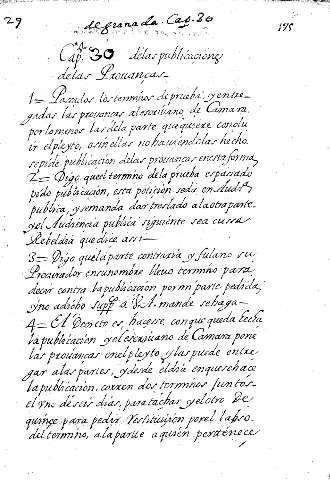 29
de granada. Cap. 30
175
Cap. 30 delas publicaciones
delas Prouanças
1 = Pasados los terminos de prueba, y entre
gadas las prouanças al escriuano de Camara,
por lo menos las dela parte que quiere conclu
ir el pleyto, o sin ellas no hauiendolas hecho
se pide publicacion delas prouanças en esta forma
2 = Digo que el termino dela prueba es pasado
pido publicacion, esta peticion se da en Audᵃ
publica, y se manda dar traslado ala otra parte
y el Audiencia publica siguiente se acusa
Rebeldia que dice assi
3 = Digo que la parte contraria y fulano su
Procurador en su nombre lleuo termino para
decir contra la publicacion por mi parte pedida,
y no a dicho suppᶜᵒ a V. A. mande se haga
4 = El Decreto es, hagase, con que queda hecha
la publicacion y el escriuano de Camara pone
las prouanças en el pleyto y las puede entre
gar alas partes, y desde el dia en que se hace
la publicacion, corren dos terminos juntos
el vno de seis dias, para tachar y el otro de
quince para pedir Restituicion por el lapso
del termino, ala parte a quien pertenece